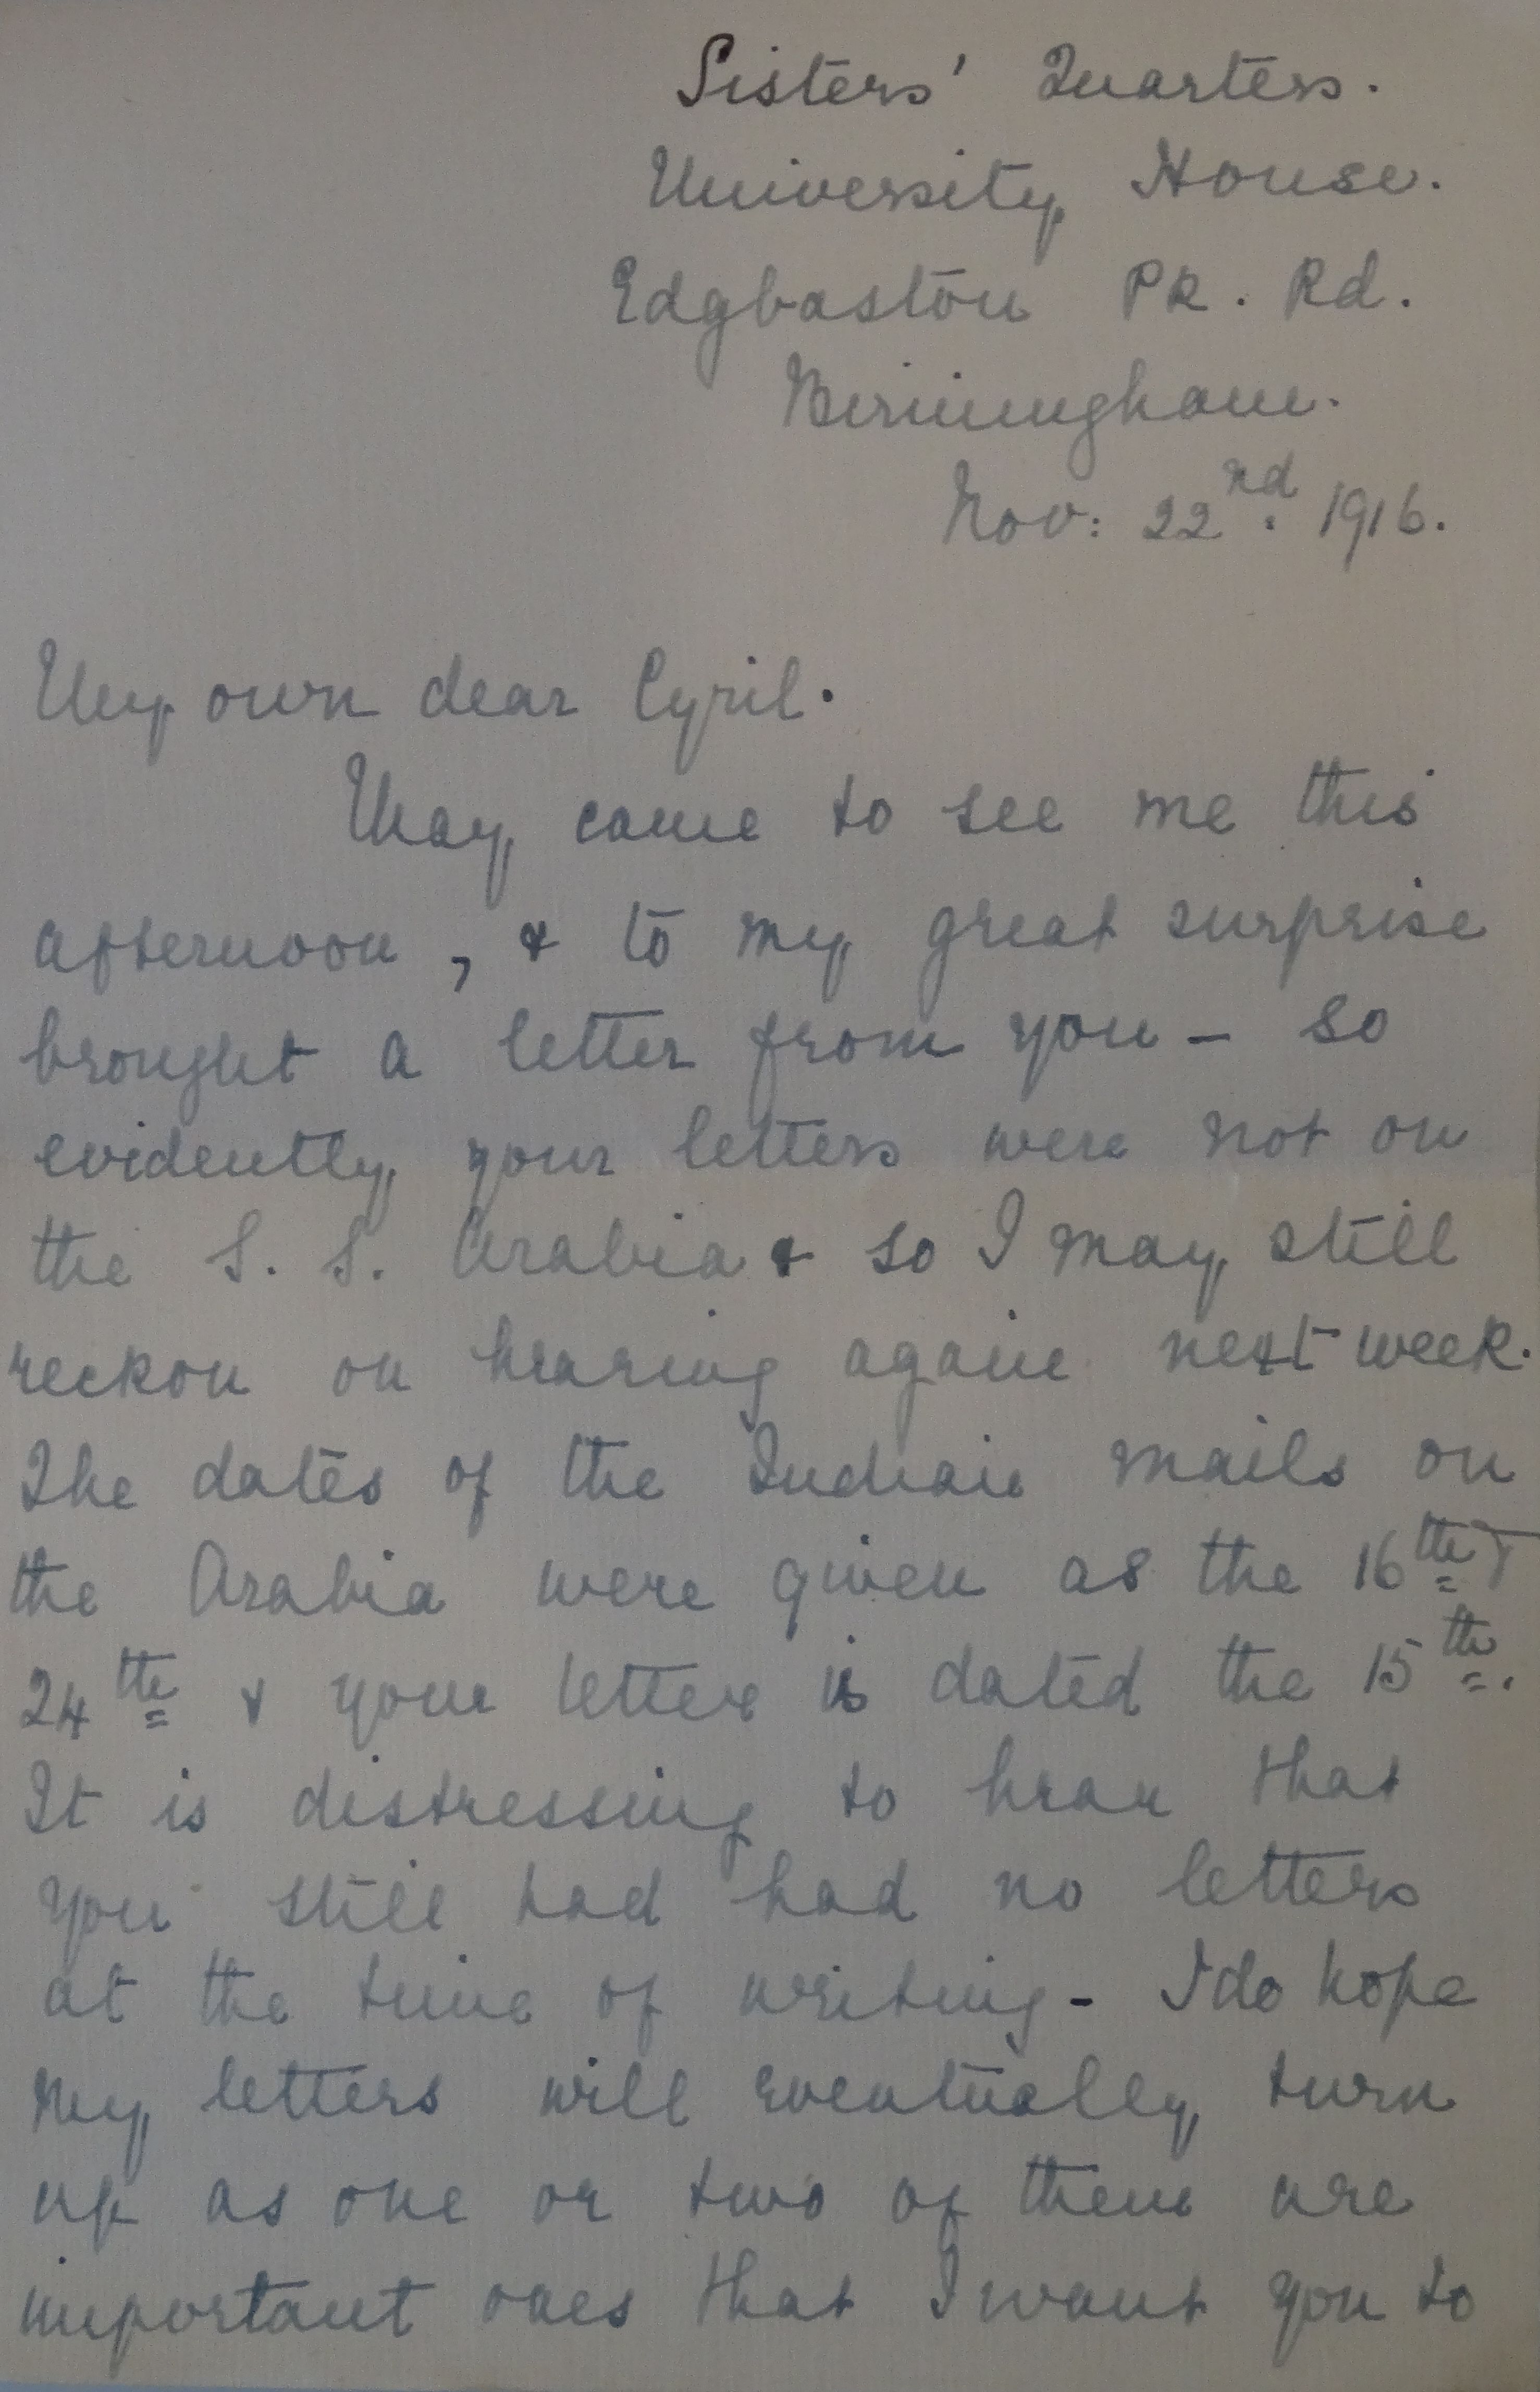 Sisters' Quarters.
University House.
Edgbaston Pk. Rd.
Birmingham.
Nov: 22nd. 1916.
My own dear Cyril.
May came to see me this
afternoon, & to my great surprise
brought a letter from you - so
evidently your letters were not on
the S. S. Arabia & so I may still
reckon on hearing again next week.
The dates of the Indian mails on
the Arabia were given as the 16th &
24th & your letter is dated the 15th.
It is distressing to hear that
you still had had no letters
at the time of writing - I do hope
my letters will eventually turn
up as one or two of them are
important ones that I want you to